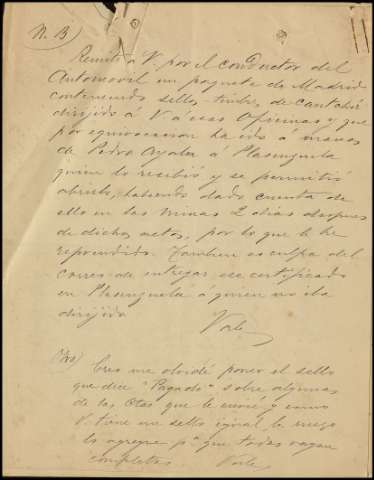 N. B.
Remití a V. por el conductor del
Automovil un paquete de Madrid
conteniendo sello, timbre, de cautchú
dirijido á V a esas Oficinas y que
por equivocacion ha ido á manos
de Pedro Ayala á Plasenzuela
quien lo recibió y se permitió
abrirlo, habiendo dado cuenta de
ello en las minas 2 dias despues
de dicho acto, por lo que le he
reprendido. Tambien es culpa del
correo de entregar ese certificado
en Plasenzuela á quien no iba
dirijido.
Vale
Otra) Creo me olvidé poner el sello
que dice "Pagado" sobre algunas
de las Ctas que le envié y como
V. tiene un sello igual le ruego
lo agregue pª que todas vayan
completas. Vale